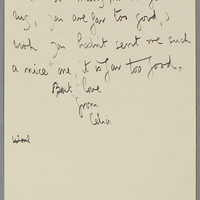 my, you are far too good, I
wish you hadn't sent me such
a nice one, it is far too good.
Best love
from
Celia